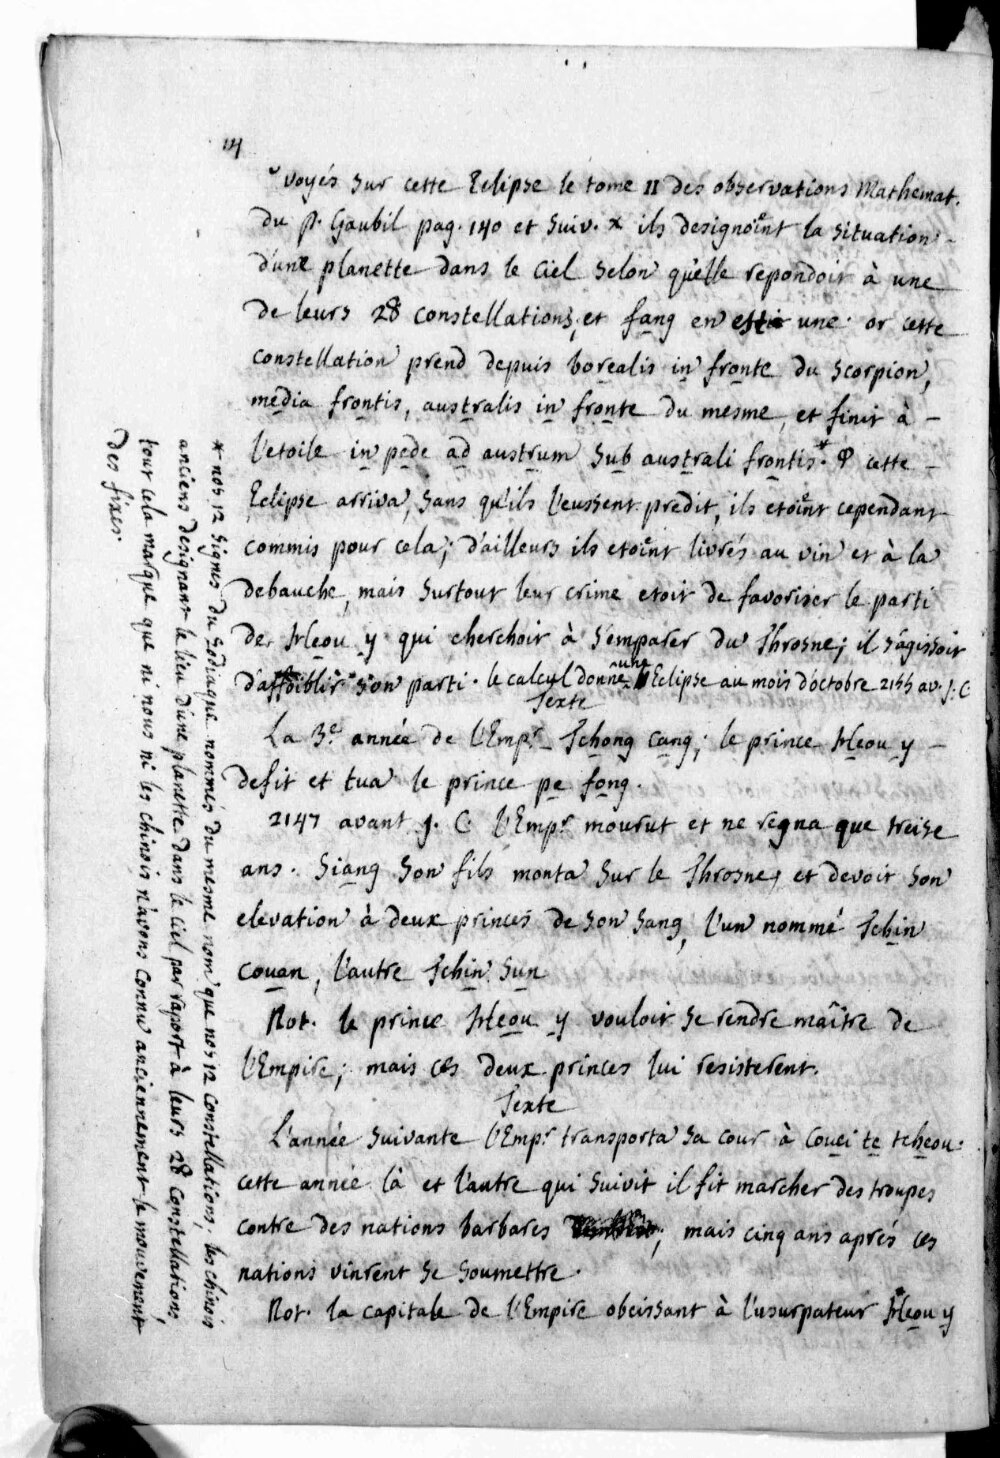 14
voyés sur cette Eclipse le tome II des observations Mathemat.
du P. Gaubil pag. 140 et suiv. x ils designoient la situation
d'une planette dans le Ciel selon qu'elle repondoit à une
de leurs 28 constellations, et fang en est une. or cette
constellation prend depuis borealis in fronte du scorpion,
media frontis, australis in fronte du mesme, et finit à
l'etoile in pede ad austrum sub australi frontis.* φ cette
Eclipse arriva, sans qu'ils l'eussent predit, ils etoient cependant
commis pour cela; d'ailleurs ils etoient livrés au vin et à la
debauche, mais surtout leur crime etoit de favoriser le parti
de Heou y qui cherchoit à s'emparer du Throsne; il s'agissoit
d'affoiblir son parti. le calcul donne une Eclipse au mois d'octobre 2155 av. J. C
Texte
La 3e année de l'Empr Tchong cang; le prince Heou y
defit et tua le prince pe fong.
2147 avant J. C. l'Empr mourut et ne regna que treise
ans. Siang son fils monta sur le Throsne, et devoit son
elevation à deux princes de son sang, l'un nommé Tchin
couan, l'autre Tchin Sun
Not. le prince Heou y vouloit se rendre maître de
l'Empire; mais ces deux princes lui resisterent.
Texte
L'année suivante l'Empr transporta sa cour à Couei te tcheou.
cette année là et l'autre qui suivit il fit marcher des troupes
contre des nations barbares; mais cinq ans aprés ces
nations vinrent se soumettre.
Not. la capitale de l'Empire obeissant à l'usurpateur Heou y
* nos 12 signes du Zodiaque nommés du mesme nom que nos 12 constellations, les chinois
anciens designant le lieu d'une planette dans le ciel par raport à leurs 28 constellations,
tout cela marque que ni nous ni les chinois n'avons connu anciennement le mouvement
des fixes.